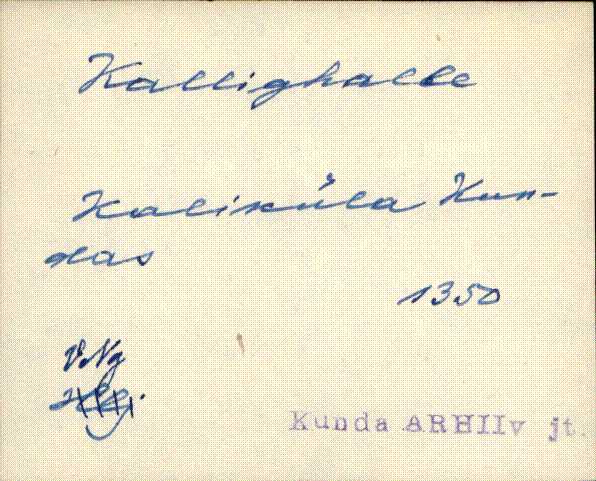 Kallighalle
Kaliküla Kun-
das
1350
V.Ng
Kunda ARHIIv jt.